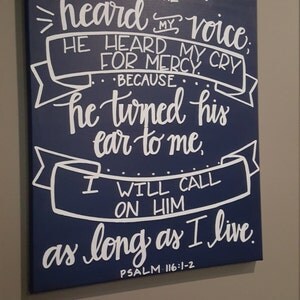 heard MY voice;
HE HEARD MY CRY
FOR MERCY.
BECAUSE
he turned his
ear to me,
I WILL CALL
ON HIM
as long as I live.
PSALM 116:1-2